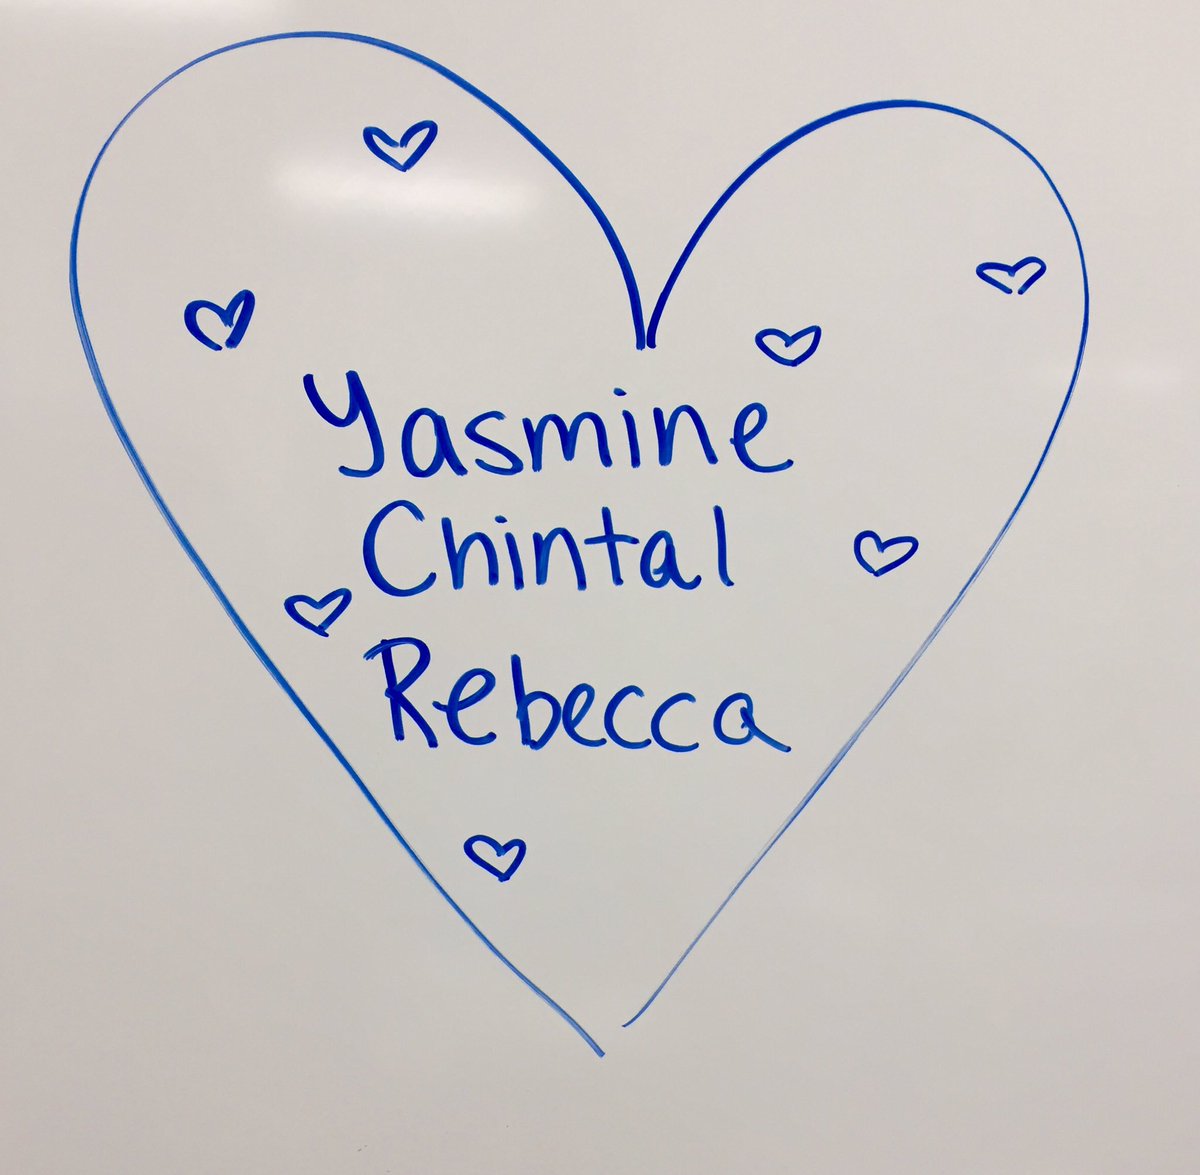 Yasmine
Chintal
Rebecca